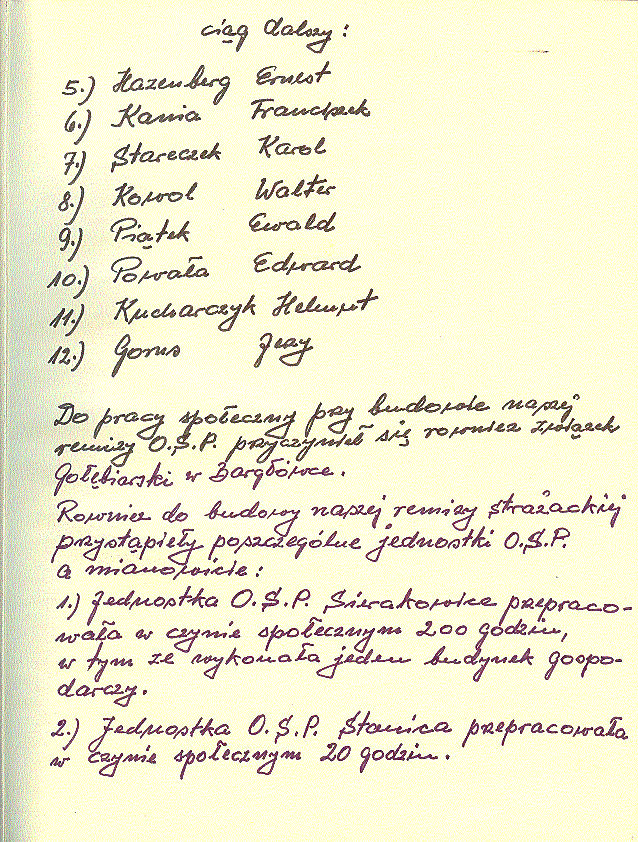 ciąg dalszy:
5.) Hazenberg Ernest
6.) Kania Franciszek
7.) Stareczek Karol
8.) Kowol Walter
9.) Piątek Ewald
10.) Powała Edward
11.) Kucharczyk Helmut
12.) Gorus Jerzy
Do pracy społeczny przy budowie naszej
remizy O.S.P. przyczynieł się rownież związek
Gołębiarski w Bargłówce.
Rownież do budowy naszej remizy strażackiej
przystąpieły poszczególne jednostki O.S.P.
a mianowicie:
1.) Jednostka O.S.P. Sierakowice przepraco-
wała w czynie społecznym 200 godzin,
w tym ze wykonała jeden budynek gospo-
darczy.
2.) Jednostka O.S.P. Stanica przepracowała
w czynie społecznym 20 godzin.